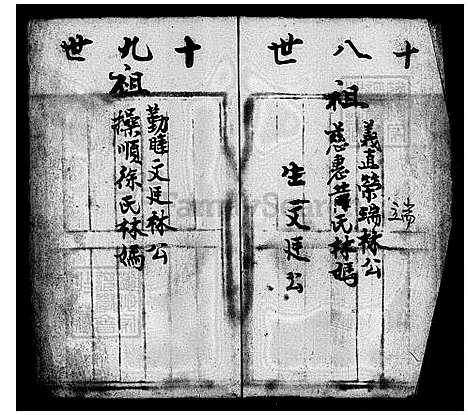 十八世
祖
義直榮瑞林公
慈惠黄氏林媽
生一文廷公
端
十九世
祖
勤睦文廷林公
操順徐氏林媽
FamilySearch